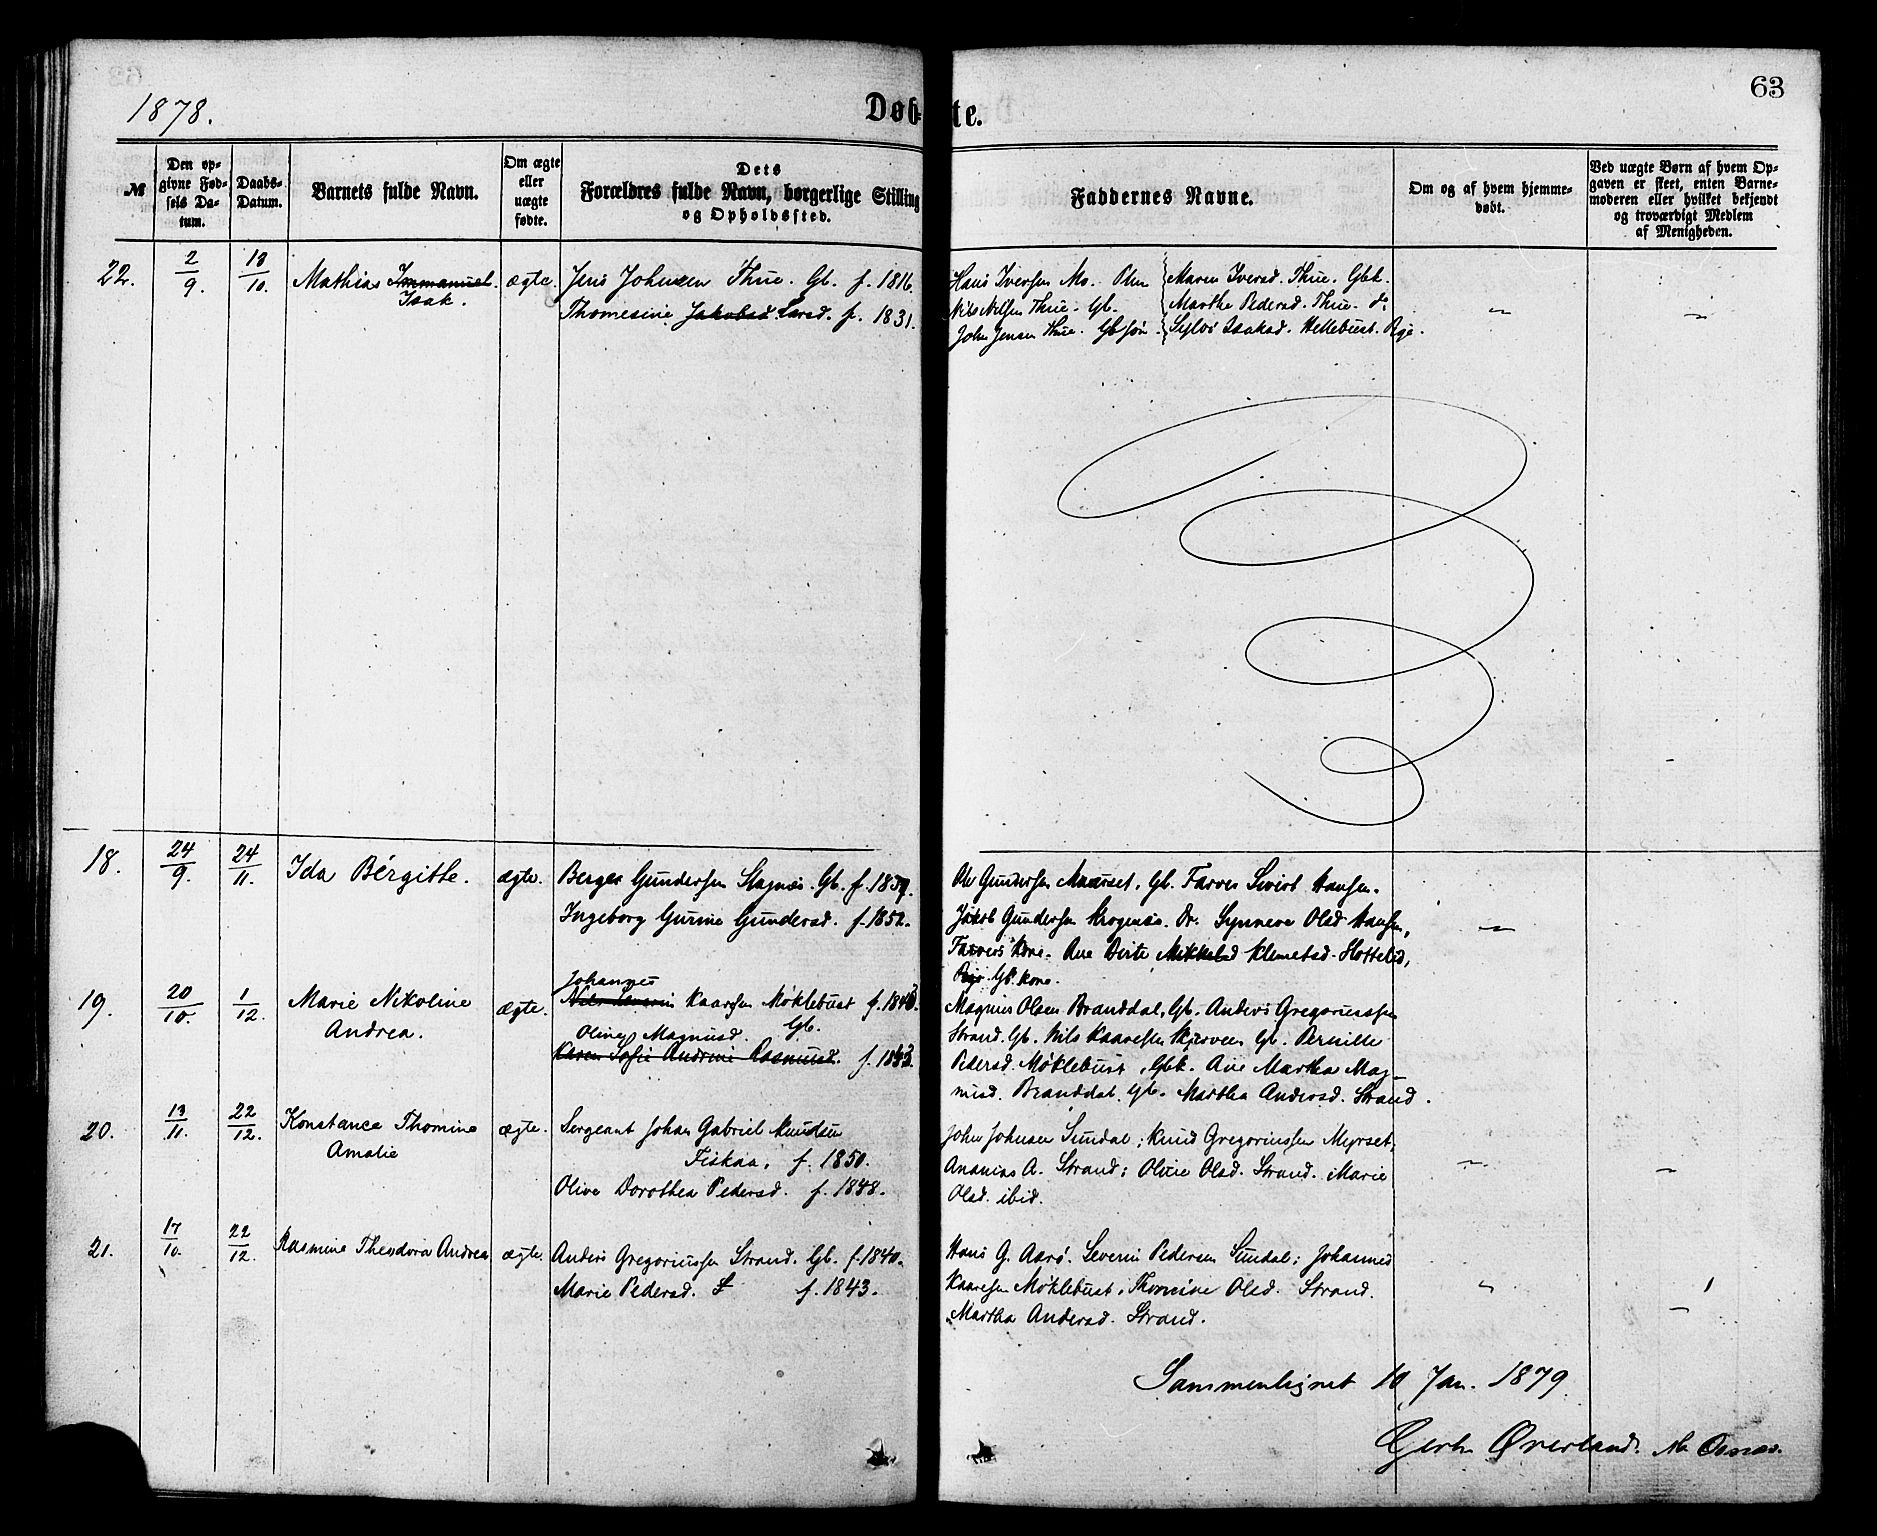 1878.
Døbte.
63
№
Den op-
givne Fød-
sels Da-
tum.
Daabs-
Datum.
Barnets fulde Navn.
Om ægte
eller
uægte
fødte.
Dets
Forældres fulde Navn, borgerlige Stilling
og Opholdssted.
Faddernes Navne.
Om og af hvem hjemme-
døbt.
Ved uægte Børn af hvem Op-
gaven er skeet, enten Barne-
moderen eller hvilket bekjendt
og troværdigt Medlem
af Menigheden.
22. 2/9. 13/10. Mathias Immanuel. ægte. Jens Johnsen Thue. Gb. f. 1816
Isak.
Thomesine Jakobsd. Larsd. f. 1831.
Hans Iversen Mo. { Maren Iversd. Thue. Gbk.
Nils Nilsen Thue. Gb. { Marthe Pedersd. Thue. do
John Jensen Thue. Gbsøn { Isaksd. Hellebust. Pge.
18. 24/9. 24/11. Ida Bergitte. ægte. Berge Gundersen Stagnes. Gb. f. 1851.
Ingeborg Gurine Gundersd. f. 1852.
Ole Gundersen Maurset, Gb. Farver Sivert Hansen.
Jakob Gundersen Do. Synneve Olsd Hansen,
Farvers Kone. Ane Berte Mikkelsd Klemetsd. Hottelid,
Gb. kone.
19. 20/10. 1/12. Marie Nikoline ægte.
Andrea.
Johannes
Nils Severin Kaaresen Møklebust f. 1843.
Gb.
Oline Magnusd.
Karen Sofie Andrine Rasmusd. f. 1843.
Magnus Olsen Branddal, Gb. Anders Gregoriussen
Strand. Gb. Nils Kaaresen Skjerveen Gb. Pernille
Pedersd. Møklebust, Gbk. Ane Martha Mag-
nusd. Branddal. Gb. Martha Andersd. Strand.
20. 13/11. 22/12. Konstance Thomine ægte. Sergeant Johan Gabriel Knudsen
Amalie
Fiskaa, f. 1850.
Olive Dorothea Pedersd. f. 1848.
John Johnsen Sundal; Knud Gregoriussen Myrset,
Ananias A. Strand; Oline Olsd. Strand. Marie
Olsd. ibid.
21. 17/10. 22/12. Rasmine Theodora Andrea ægte. Anders Gregoriussen Strand. Gb. f. 1840.
Marie Pedersd. f. 1843.
Hans G. Aarø. Severin Pedersen Sundal; Johannes
Kaaresen Møklebust, Thomine Olsd. Strand.
Martha Andersd. Strand.
Sammenlignet 10 Jan. 1879.
Gerh. Øverland.